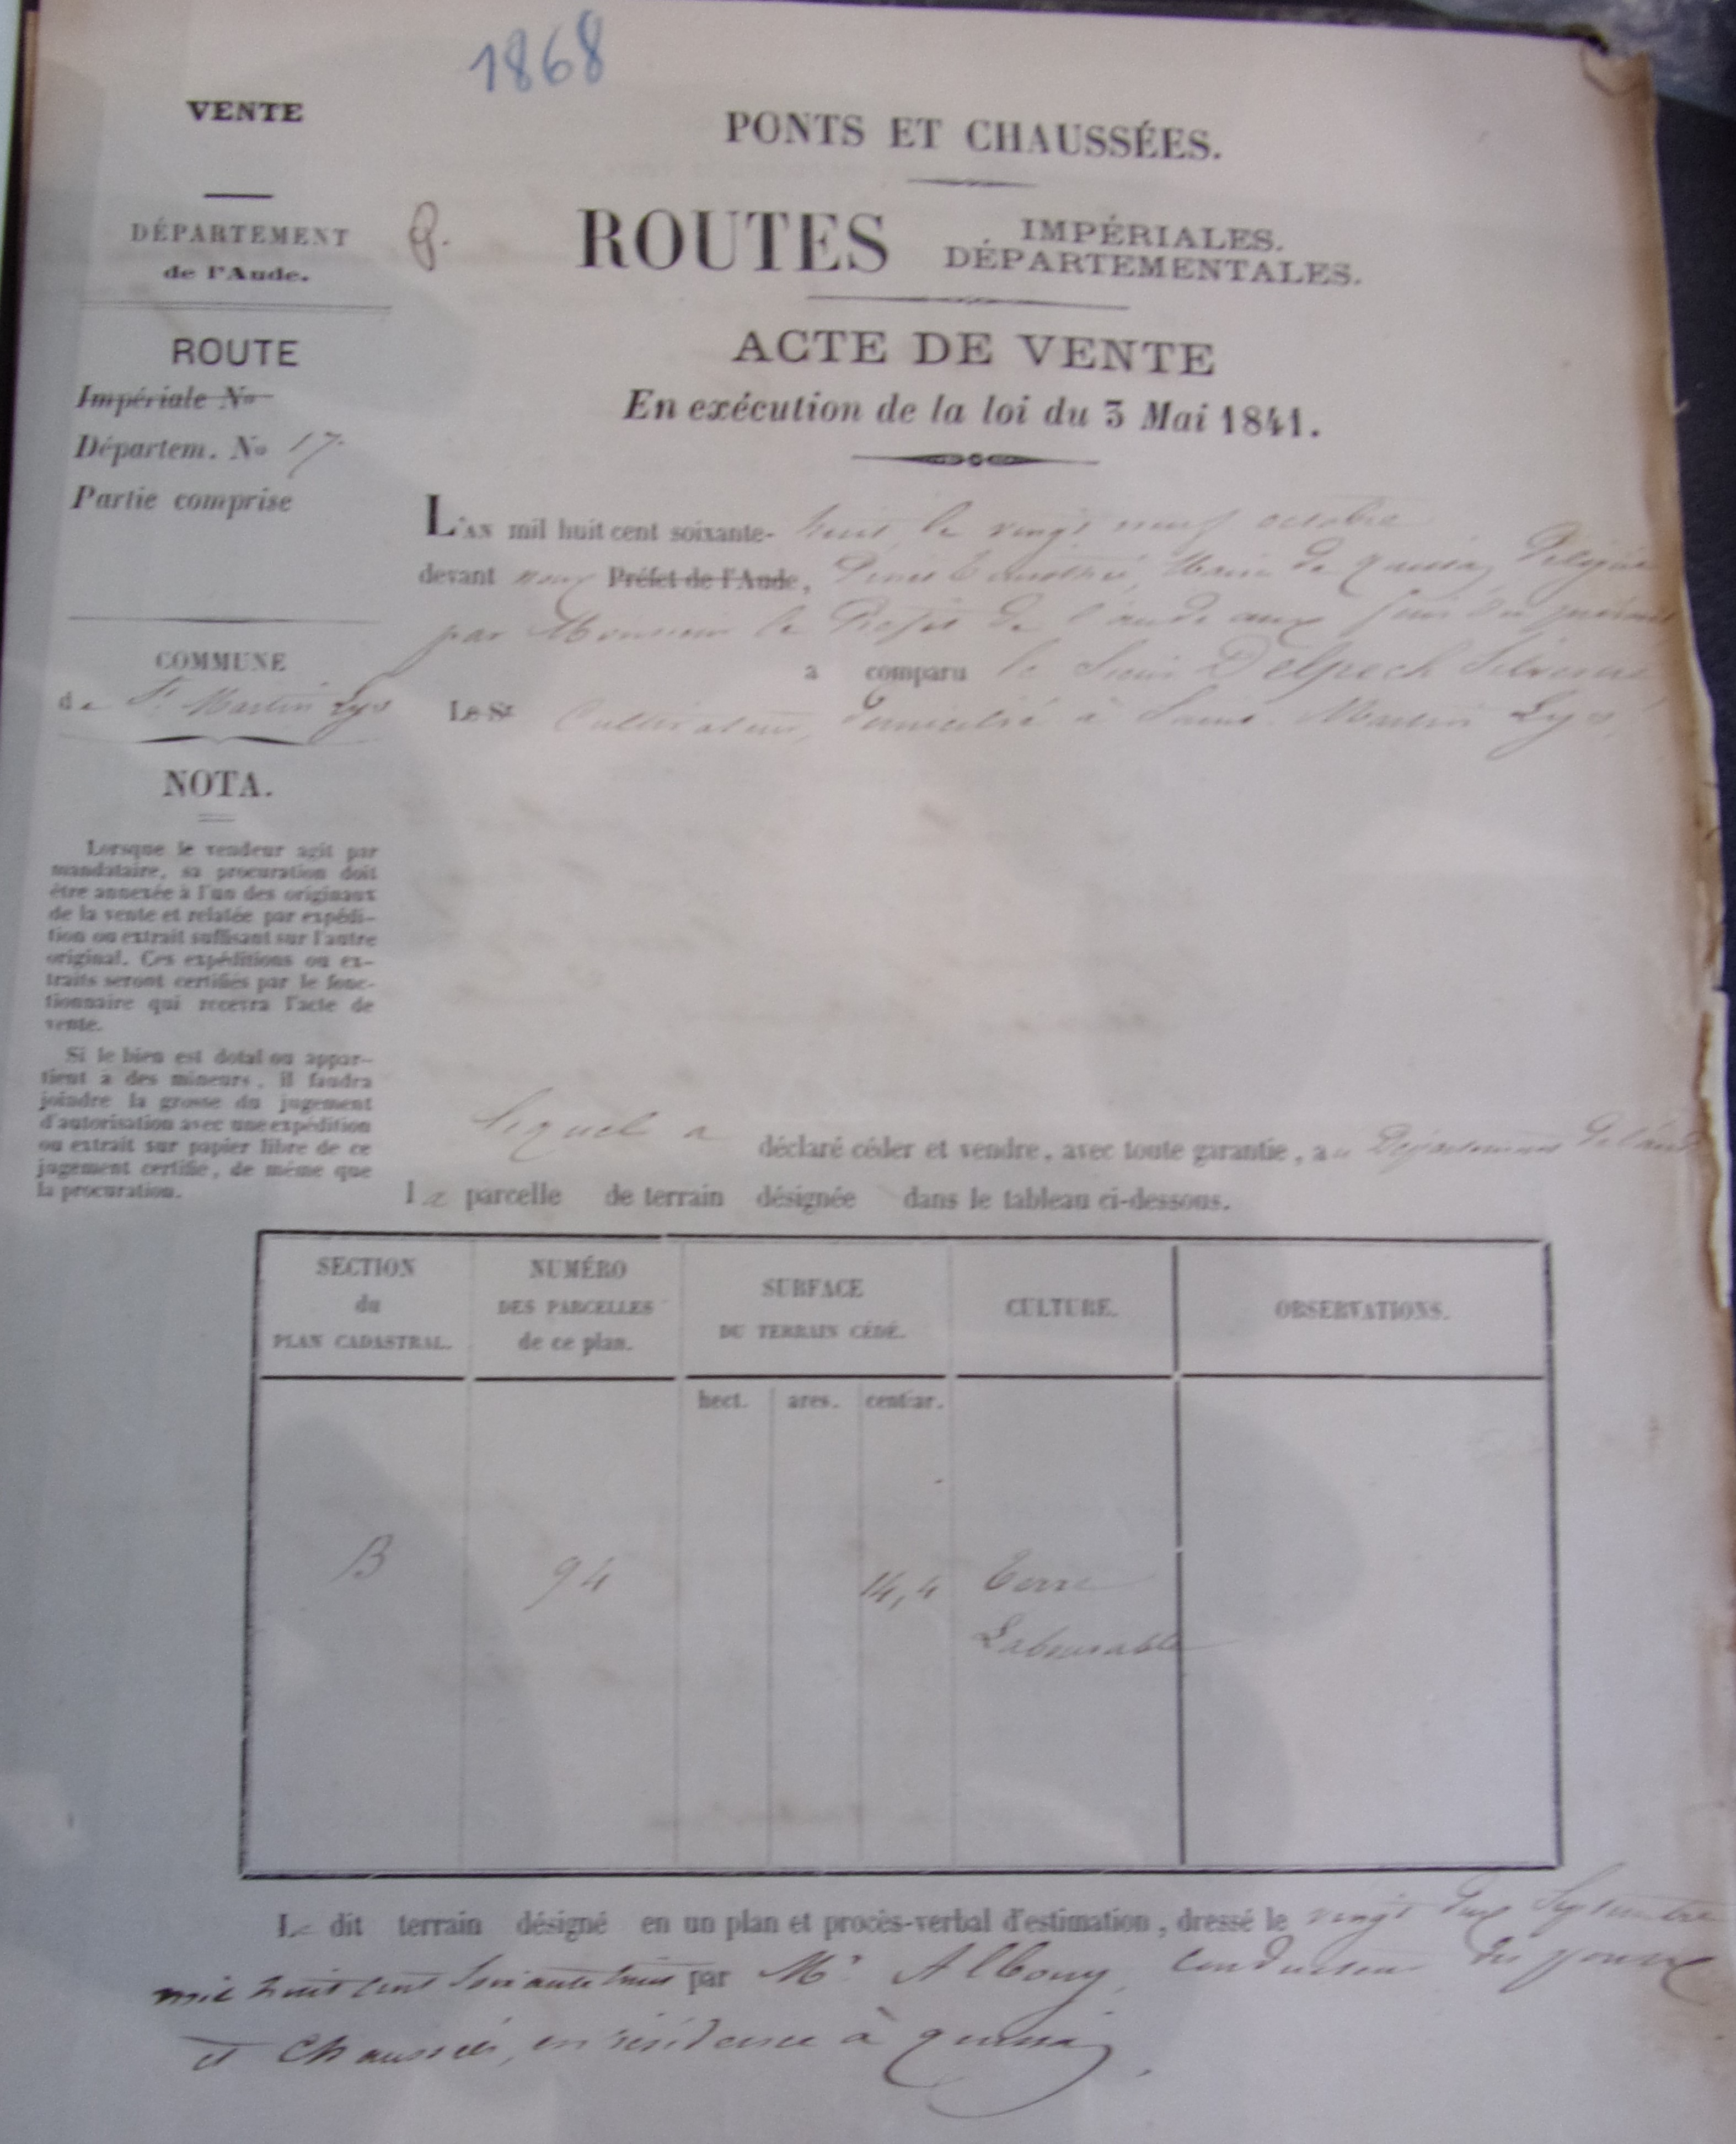 1868
VENTE
DÉPARTEMENT
de l'Aude.
ROUTE
Impériale No
Départem. No 17.
Partie comprise
COMMUNE
de St Martin Lys
NOTA.
Lorsque le vendeur agit par
mandataire, sa procuration doit
être annexée à l'un des originaux
de la vente et relatée par expédi-
tion ou extrait suffisant sur l'autre
original. Ces expéditions ou ex-
traits seront certifiés par le fonc-
tionnaire qui recevra l'acte de
vente.
Si le bien est dotal ou appar-
tient à des mineurs, il faudra
joindre la grosse du jugement
d'autorisation avec une expédition
ou extrait sur papier libre de ce
jugement certifié, de même que
la procuration.
PONTS ET CHAUSSÉES.
ROUTES IMPÉRIALES.
DÉPARTEMENTALES.
ACTE DE VENTE
En exécution de la loi du 3 Mai 1841.
L'AN mil huit cent soixante-huit, le vingt neuf octobre
devant nous Préfet de l'Aude, Maire de Quillan, Délégué
par Monsieur le Préfet de l'aude aux fins du présent
a comparu le Sieur Delpech
Le Sr Cultivateur, domicilié à Saint Martin Lys,
Lequel a déclaré céder et vendre, avec toute garantie, au Département de l'aude
La parcelle de terrain désignée dans le tableau ci-dessous.
SECTION
du
PLAN CADASTRAL.
NUMÉRO
DES PARCELLES
de ce plan.
SURFACE
DU TERRAIN CÉDÉ.
CULTURE.
OBSERVATIONS.
hect. ares. centiar.
B 94 14,4 Terre
Labourable
Le dit terrain désigné en un plan et procès-verbal d'estimation, dressé le vingt deux Septembre
mil huit cent soixante huit par Mr Albouy, conducteur des ponts
et Chaussées, en résidence à Quillan.